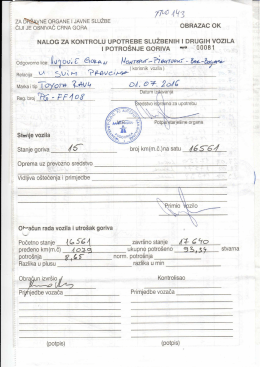 TPO 143
ZA DRŽAVNE ORGANE I JAVNE SLUŽBE
ČIJI JE OSNIVAČ CRNA GORA
OBRAZAC OK
NALOG ZA KONTROLU UPOTREBE SLUŽBENIH I DRUGIH VOZILA
I POTROŠNJE GORIVA 00081
Odgovorno lice
( korisnik vozila )
Relacija U SVIM PRAVCIMA
Marka i tip TOYOTA RAV4 01.07.2016
Datum izdavanja
Reg. broj PG-FF108
Sredstvo koristiti za upotrebu
Potpis starješine organa
Stanje vozila
Stanje goriva 15 broj km(č.č.)na satu 16561
Oprema uz prevozno sredstvo
Vidljiva oštećenja i primjedbe
Primio vozilo
Obračun rada vozila i utrošak goriva
Početno stanje 16561 završno stanje 17640
pređeno km(m.č) 1079 ukupne potrošeno 93,34 stvarna
potrošnja 8,65 norm. potrošnja
Razlika u plusu razlika u min
Obračun izvršio Kontrolisao
Primjedbe vozača Primjedbe vozača
(potpis) (potpis)